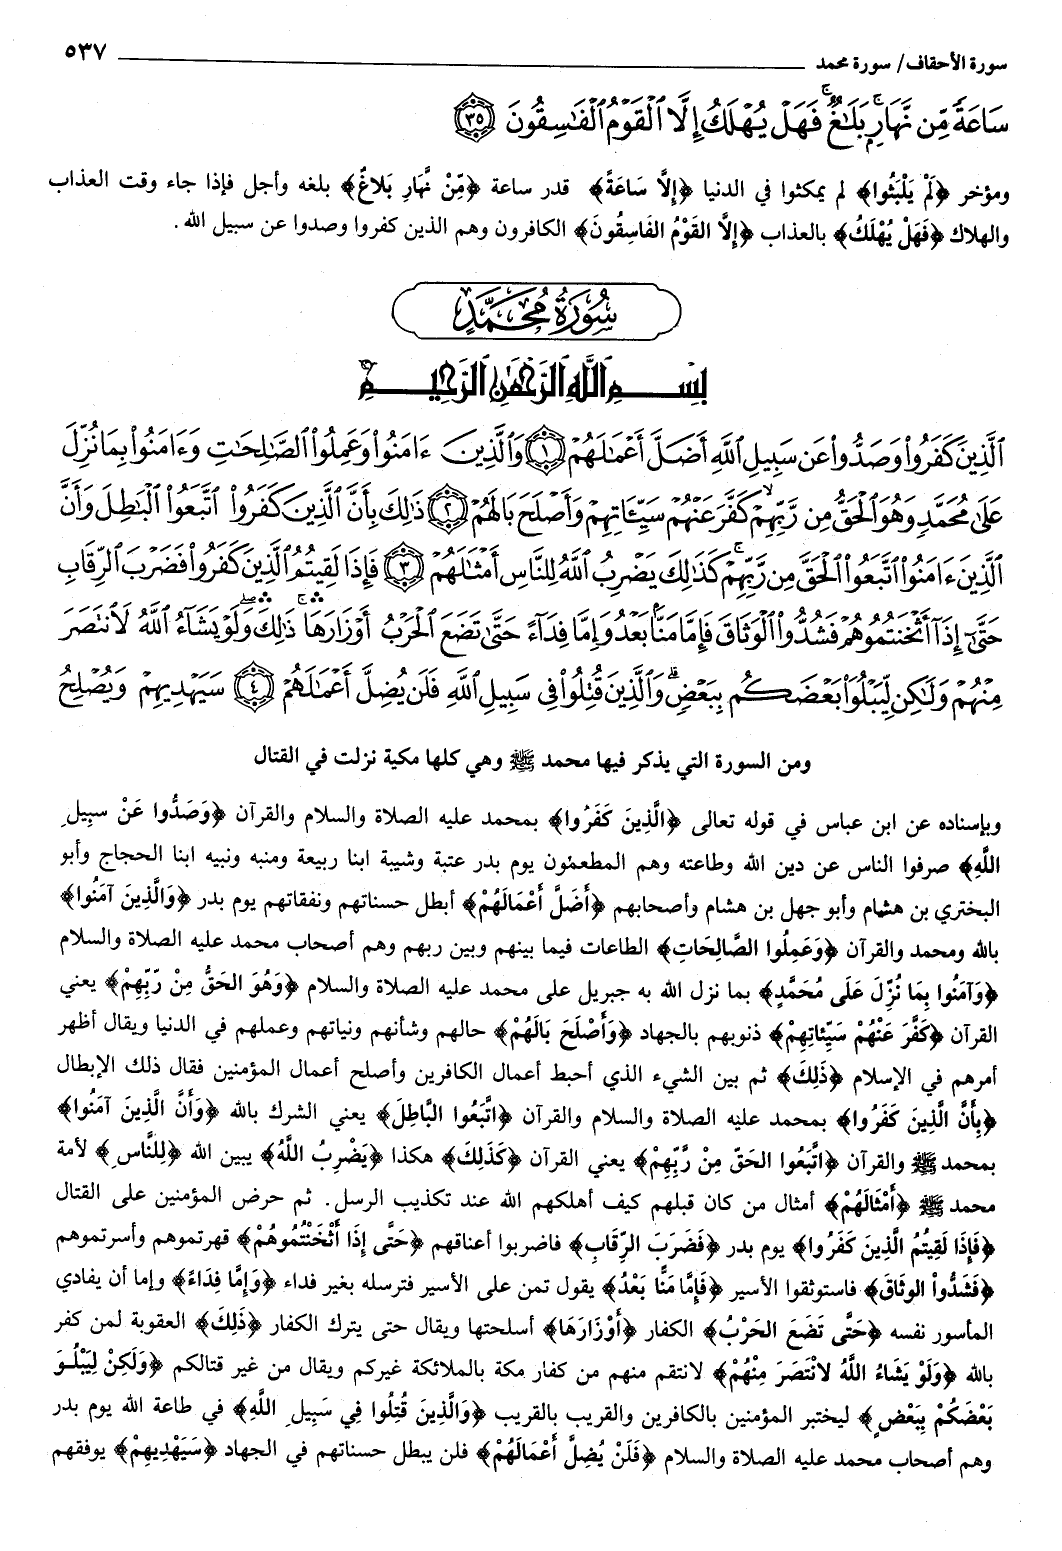 سورة الأحقاف/ سورة محمد ٥٣٧
سَاعَةً مِّن نَّهَارٍۚ بَلَٰغٌۚ فَهَلۡ يُهۡلَكُ إِلَّا ٱلۡقَوۡمُ ٱلۡفَٰسِقُونَ ٣٥
ومؤخر ﴿لَمْ يَلْبَثُوا﴾ لم يمكثوا في الدنيا ﴿إلَّا سَاعَةً﴾ قدر ساعة ﴿مِّنْ نَّهَارٍ بَلاغٌ﴾ بلغه وأجل فإذا جاء وقت العذاب
والهلاك ﴿فَهَلْ يُهْلَكُ﴾ بالعذاب ﴿إلَّا القَوْمُ الفَاسِقُونَ﴾ الكافرون وهم الذين كفروا وصدوا عن سبيل الله.
سُورَةُ مُحَمَّدٍ
بِسْمِ ٱللَّهِ ٱلرَّحْمَٰنِ ٱلرَّحِيمِ
ٱلَّذِينَ كَفَرُواْ وَصَدُّواْ عَن سَبِيلِ ٱللَّهِ أَضَلَّ أَعۡمَٰلَهُمۡ ١ وَٱلَّذِينَ ءَامَنُواْ وَعَمِلُواْ ٱلصَّٰلِحَٰتِ وَءَامَنُواْ بِمَا نُزِّلَ
عَلَىٰ مُحَمَّدٍ وَهُوَ ٱلۡحَقُّ مِن رَّبِّهِمۡۙ كَفَّرَ عَنۡهُمۡ سَيِّـَٔاتِهِمۡ وَأَصۡلَحَ بَالَهُمۡ ٢ ذَٰلِكَ بِأَنَّ ٱلَّذِينَ كَفَرُواْ ٱتَّبَعُواْ ٱلۡبَٰطِلَ وَأَنَّ
ٱلَّذِينَ ءَامَنُواْ ٱتَّبَعُواْ ٱلۡحَقَّ مِن رَّبِّهِمۡۚ كَذَٰلِكَ يَضۡرِبُ ٱللَّهُ لِلنَّاسِ أَمۡثَٰلَهُمۡ ٣ فَإِذَا لَقِيتُمُ ٱلَّذِينَ كَفَرُواْ فَضَرۡبَ ٱلرِّقَابِ
حَتَّىٰٓ إِذَآ أَثۡخَنتُمُوهُمۡ فَشُدُّواْ ٱلۡوَثَاقَ فَإِمَّا مَنَّۢا بَعۡدُ وَإِمَّا فِدَآءً حَتَّىٰ تَضَعَ ٱلۡحَرۡبُ أَوۡزَارَهَاۛۚ ذَٰلِكَۛۖ وَلَوۡ يَشَآءُ ٱللَّهُ لَٱنتَصَرَ
مِنۡهُمۡ وَلَٰكِن لِّيَبۡلُوَاْ بَعۡضَكُم بِبَعۡضٖۗ وَٱلَّذِينَ قُتِلُواْ فِي سَبِيلِ ٱللَّهِ فَلَن يُضِلَّ أَعۡمَٰلَهُمۡ ٤ سَيَهۡدِيهِمۡ وَيُصۡلِحُ
ومن السورة التي يذكر فيها محمد ﷺ وهي كلها مكية نزلت في القتال
وبإسناده عن ابن عباس في قوله تعالى ﴿الَّذِينَ كَفَرُوا﴾ بمحمد عليه الصلاة والسلام والقرآن ﴿وَصَدُّوا عَنْ سبِيلِ
اللَّهِ﴾ صرفوا الناس عن دين الله وطاعته وهم المطعمون يوم بدر عتبة وشيبة ابنا ربيعة ومنبه ونبيه ابنا الحجاج وأبو
البختري بن هشام وأبو جهل بن هشام وأصحابهم ﴿أَضَلَّ أَعْمَالَهُمْ﴾ أبطل حسناتهم ونفقاتهم يوم بدر ﴿وَالَّذِينَ آمَنُوا﴾
بالله ومحمد والقرآن ﴿وَعَمِلُوا الصَّالِحَاتِ﴾ الطاعات فيما بينهم وبين ربهم وهم أصحاب محمد عليه الصلاة والسلام
﴿وَآمَنُوا بِمَا نُزِّلَ عَلَى مُحَمَّدٍ﴾ بما نزل الله به جبريل على محمد عليه الصلاة والسلام ﴿وَهُوَ الحَقُّ مِنْ رَبِّهِمْ﴾ يعني
القرآن ﴿كَفَّرَ عَنْهُمْ سَيِّئاتِهِمْ﴾ ذنوبهم بالجهاد ﴿وَأَصْلَحَ بَالَهُمْ﴾ حالهم وشأنهم ونياتهم وعملهم في الدنيا ويقال أظهر
أمرهم في الإسلام ﴿ذَلِكَ﴾ ثم بين الشيء الذي أحبط أعمال الكافرين وأصلح أعمال المؤمنين فقال ذلك الإبطال
﴿بِأَنَّ الَّذِينَ كَفَرُوا﴾ بمحمد عليه الصلاة والسلام والقرآن ﴿اتَّبَعُوا البَّاطِلَ﴾ يعني الشرك بالله ﴿وَأَنَّ الَّذِينَ آمَنُوا﴾
بمحمد ﷺ والقرآن ﴿اتَّبَعُوا الحَقّ مِنْ رَّبِّهِمْ﴾ يعني القرآن ﴿كَذَلِكَ﴾ هكذا ﴿يَضْرِبُ اللَّهُ﴾ يبين الله ﴿لِلنَّاسِ﴾ لأمة
محمد ﷺ ﴿أَمْثَالَهُمْ﴾ أمثال من كان قبلهم كيف أهلكهم الله عند تكذيب الرسل. ثم حرض المؤمنين على القتال
﴿فَإِذَا لَقِيتُم الَّذِينَ كَفَرُوا﴾ يوم بدر ﴿فَضَرَبَ الرِّقَابِ﴾ فاضربوا أعناقهم ﴿حَتَّى إذَا أَثْخَنْتُمُوهُمْ﴾ قهرتموهم وأسرتموهم
﴿فَشُدُّواْ الوثَاقَ﴾ فاستوثقوا الأسير ﴿فَإمَّا مَنًّا بَعْدُ﴾ يقول تمن على الأسير فترسله بغير فداء ﴿وَإمَّا فِدَاءً﴾ وإما أن يفادي
المأسور نفسه ﴿حَتَّى تَضَعَ الحَرْبُ﴾ الكفار ﴿أوْزَارَهَا﴾ أسلحتها ويقال حتى يترك الكفار ﴿ذَلِكَ﴾ العقوبة لمن كفر
بالله ﴿وَلَوْ يَشَاءُ اللَّهُ لانْتَصَرَ مِنْهُمْ﴾ لانتقم منهم من كفار مكة بالملائكة غيركم ويقال من غير قتالكم ﴿وَلَكِنْ لِيَبْلُوَ
بَعْضَكُمْ بِبَعْضٍ﴾ ليختبر المؤمنين بالكافرين والقريب بالقريب ﴿وَالَّذِينَ قُتِلُوا فِي سَبِيلِ اللَّهِ﴾ في طاعة الله يوم بدر
وهم أصحاب محمد عليه الصلاة والسلام ﴿فَلَنْ يُضِلَّ أَعْمَالَهُمْ﴾ فلن يبطل حسناتهم في الجهاد ﴿سَيَهْدِيهِمْ﴾ يوفقهم